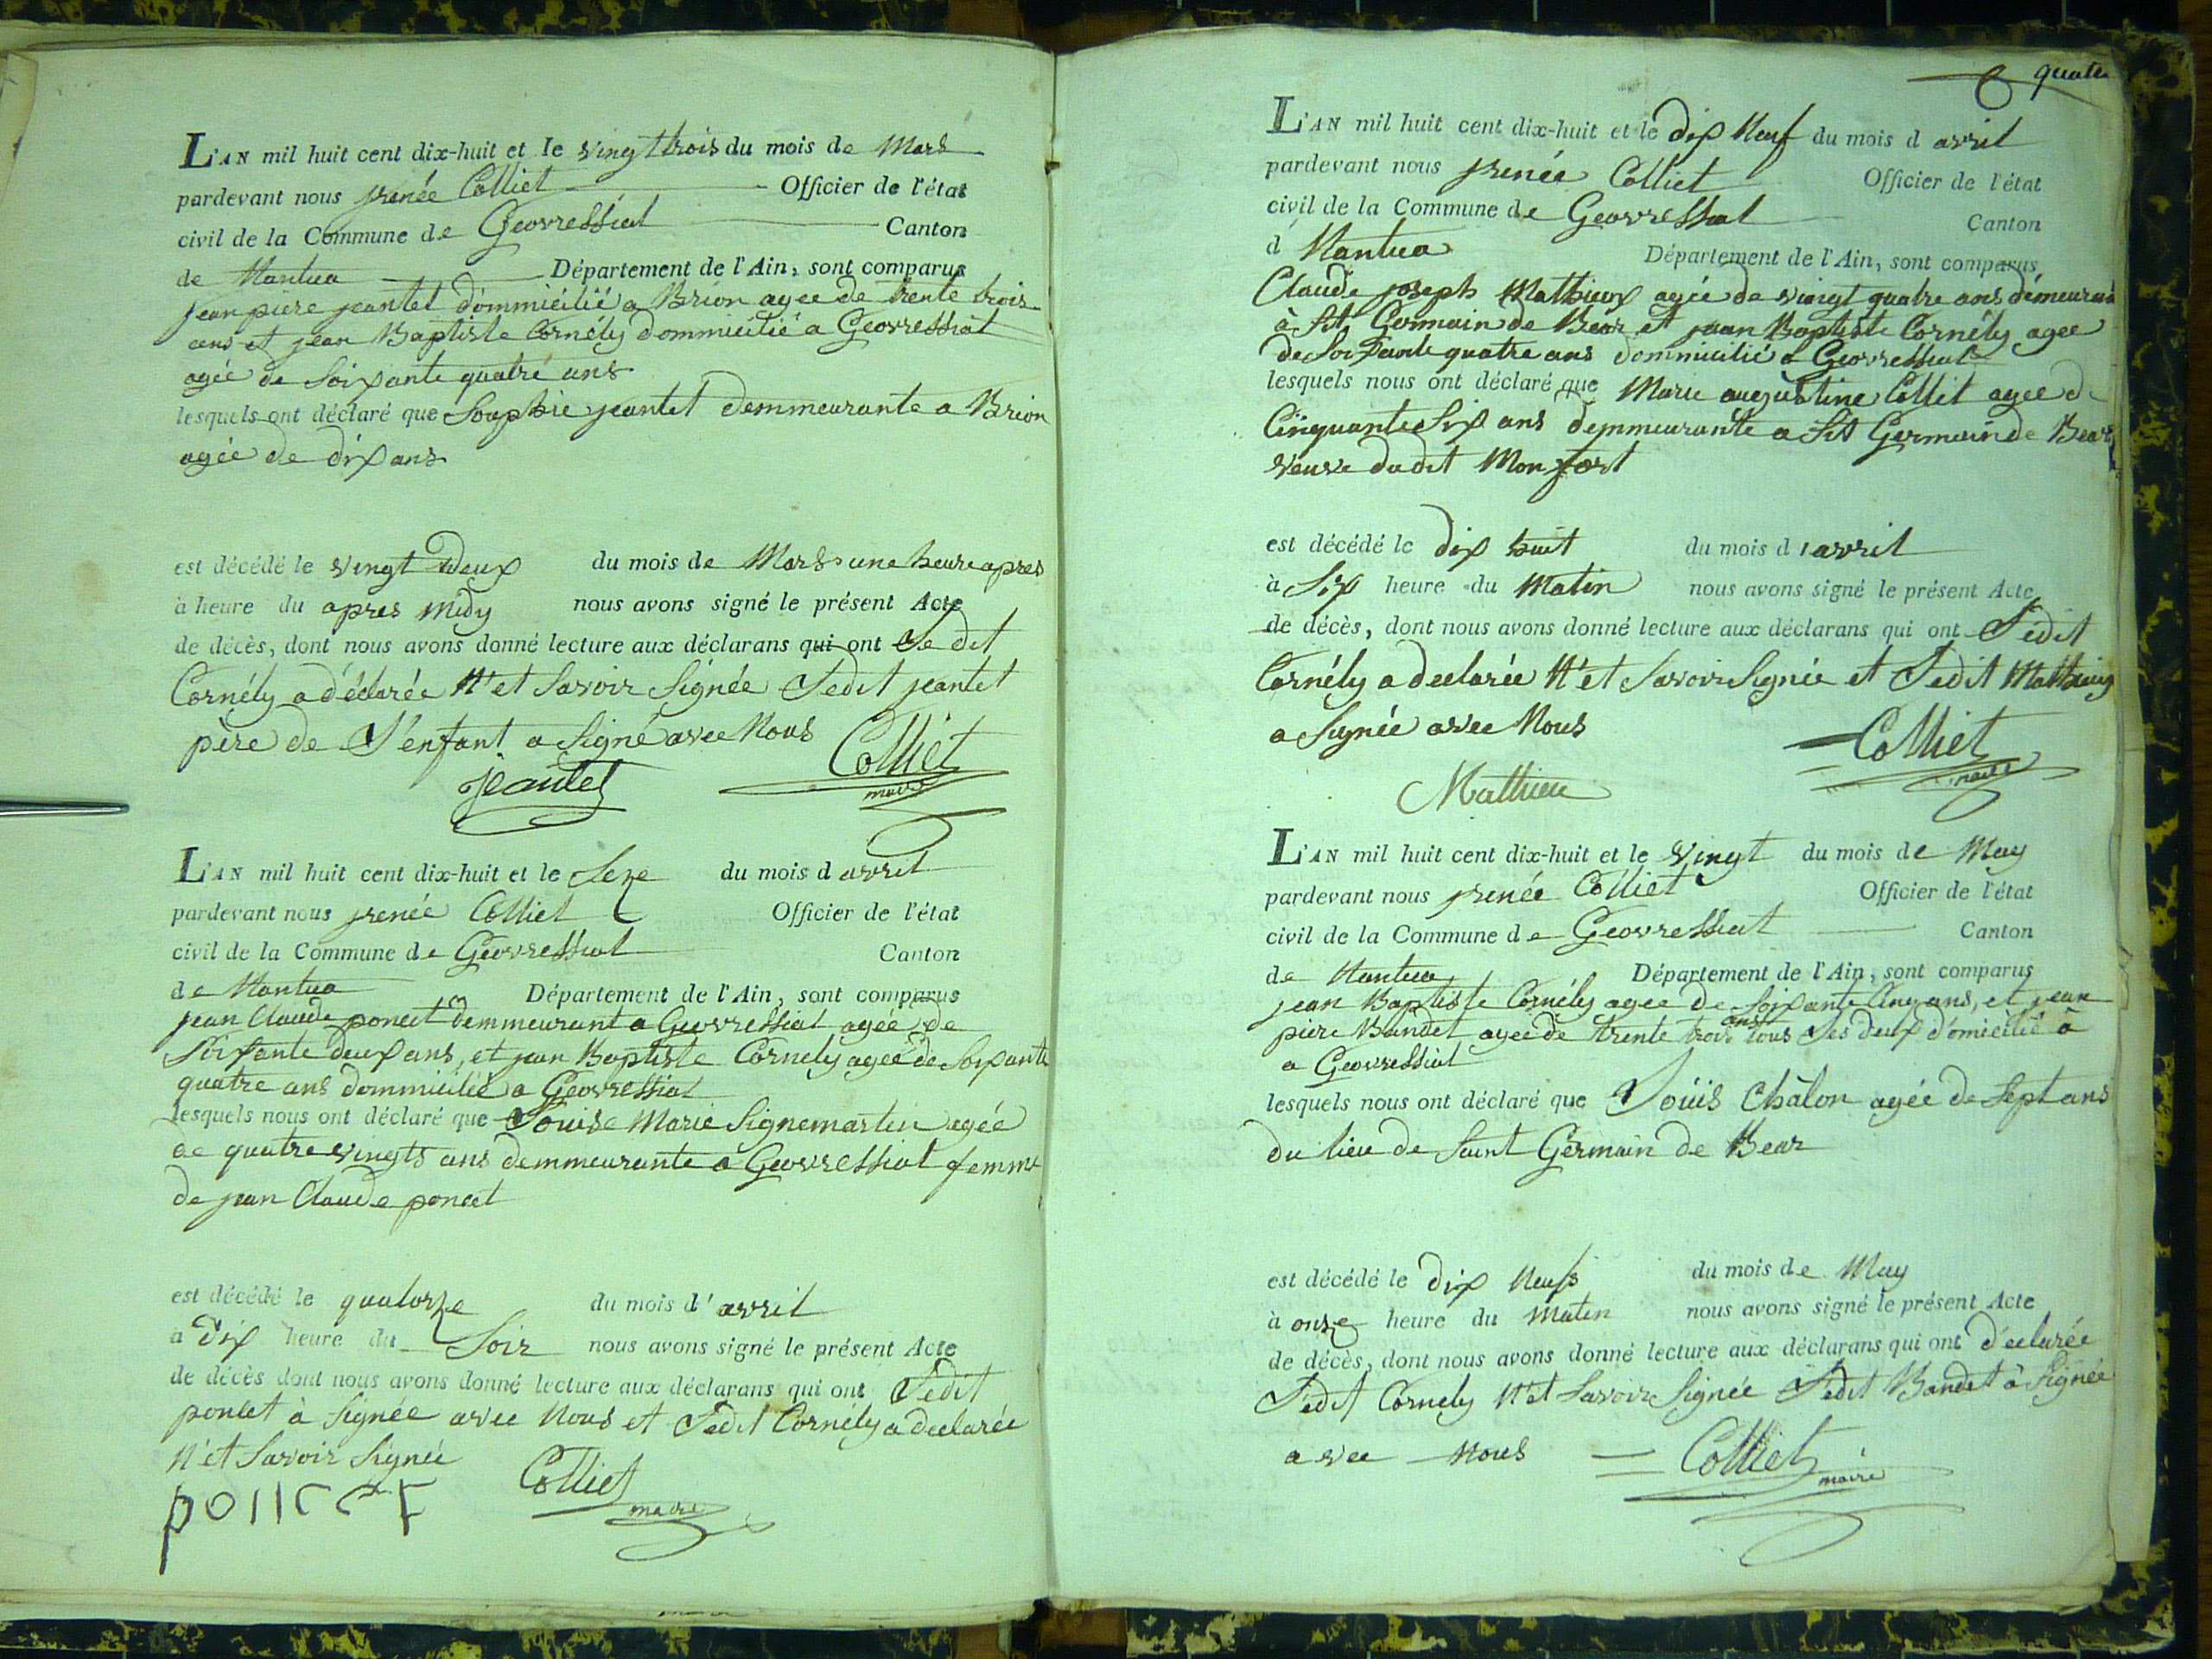 L'AN mil huit cent dix-huit et le vingt trois du mois de Mars
pardevant nous renée Colliet Officier de l'état
civil de la Commune de Geovressiat Canton
de Nantua Département de l'Ain, sont comparus
jean piere jeantet dommicilié a Brion agee de trente trois
ans et jean Baptiste Cornély dommicilié a Geovressiat
agée de soixante quatre ans
lesquels ont déclaré que Souphie jeantet demmeurante a Brion
agée de dix ans
est décédé le vingt deux du mois de Mars une heure apres
à heure du apres midy nous avons signé le présent Acte
de décès, dont nous avons donné lecture aux déclarans qui ont Le dit
Cornély a déclarée N'et savoir signée Ledit jeantet
père de L'enfant a signé avec Nous Colliet
jeantet maire
L'AN mil huit cent dix-huit et le seze du mois d avril
pardevant nous renée Colliet Officier de l'état
civil de la Commune de Geovressiat Canton
de Nantua Département de l'Ain, sont comparus
jean Claude poncet demmeurant a Geovressiat agée de
soixante deux ans, et jean Baptiste Cornely agée de soixante
quatre ans dommicilié a Geovressiat
lesquels nous ont déclaré que Louise Marie Signemartin agée
de quatre vingts ans demmeurante a Geovressiat femme
de jean Claude poncet
est décédé le quatorze du mois d' avril
à dix heure du Soir nous avons signé le présent Acte
de décès dont nous avons donné lecture aux déclarans qui ont Ledit
poncet à signée avec Nous et Ledit Cornély a declarée
N'et savoir signée Colliet
poncet maire
quatre
L'AN mil huit cent dix-huit et le dix Neuf du mois d avril
pardevant nous renée Colliet Officier de l'état
civil de la Commune de Geovressiat Canton
d Nantua Département de l'Ain, sont comparus
Claude joseph Mathieux agée de vingt quatre ans démeurant
à St Germain de Béar et jean Baptiste Cornély agee
de soixante quatre ans dommicilié a Geovressiat
lesquels nous ont déclaré que Marie augustine Collet agee de
Cinquante six ans demmeurante a St Germain de Bear
veuve dudit Monfort
est décédé le dix huit du mois d avril
à Six heure du Matin nous avons signé le présent Acte
de décès, dont nous avons donné lecture aux déclarans qui ont Ledit
Cornély a declarée N'et savoir signée et Ledit Mathieux
a signée avec Nous Colliet
Mathieu maire
L'AN mil huit cent dix-huit et le vingt du mois de May
pardevant nous renée Colliet Officier de l'état
civil de la Commune de Geovressiat Canton
de Nantua Département de l'Ain, sont comparus
jean Baptiste Cornély agee de soixante Cinq ans, et jean
piere Bandet agee de trente trois ans tous les deux domicilié à
a Geovressiat
lesquels nous ont déclaré que Louis Châlon agée de sept ans
du lieu de Saint Germain de Bear
est décédé le dix Neuf du mois de May
à onze heure du matin nous avons signé le présent Acte
de décès, dont nous avons donné lecture aux déclarans qui ont declarée
Ledit Cornely N'et savoir signée Ledit Bandet à signée
avec Nous Colliet
maire